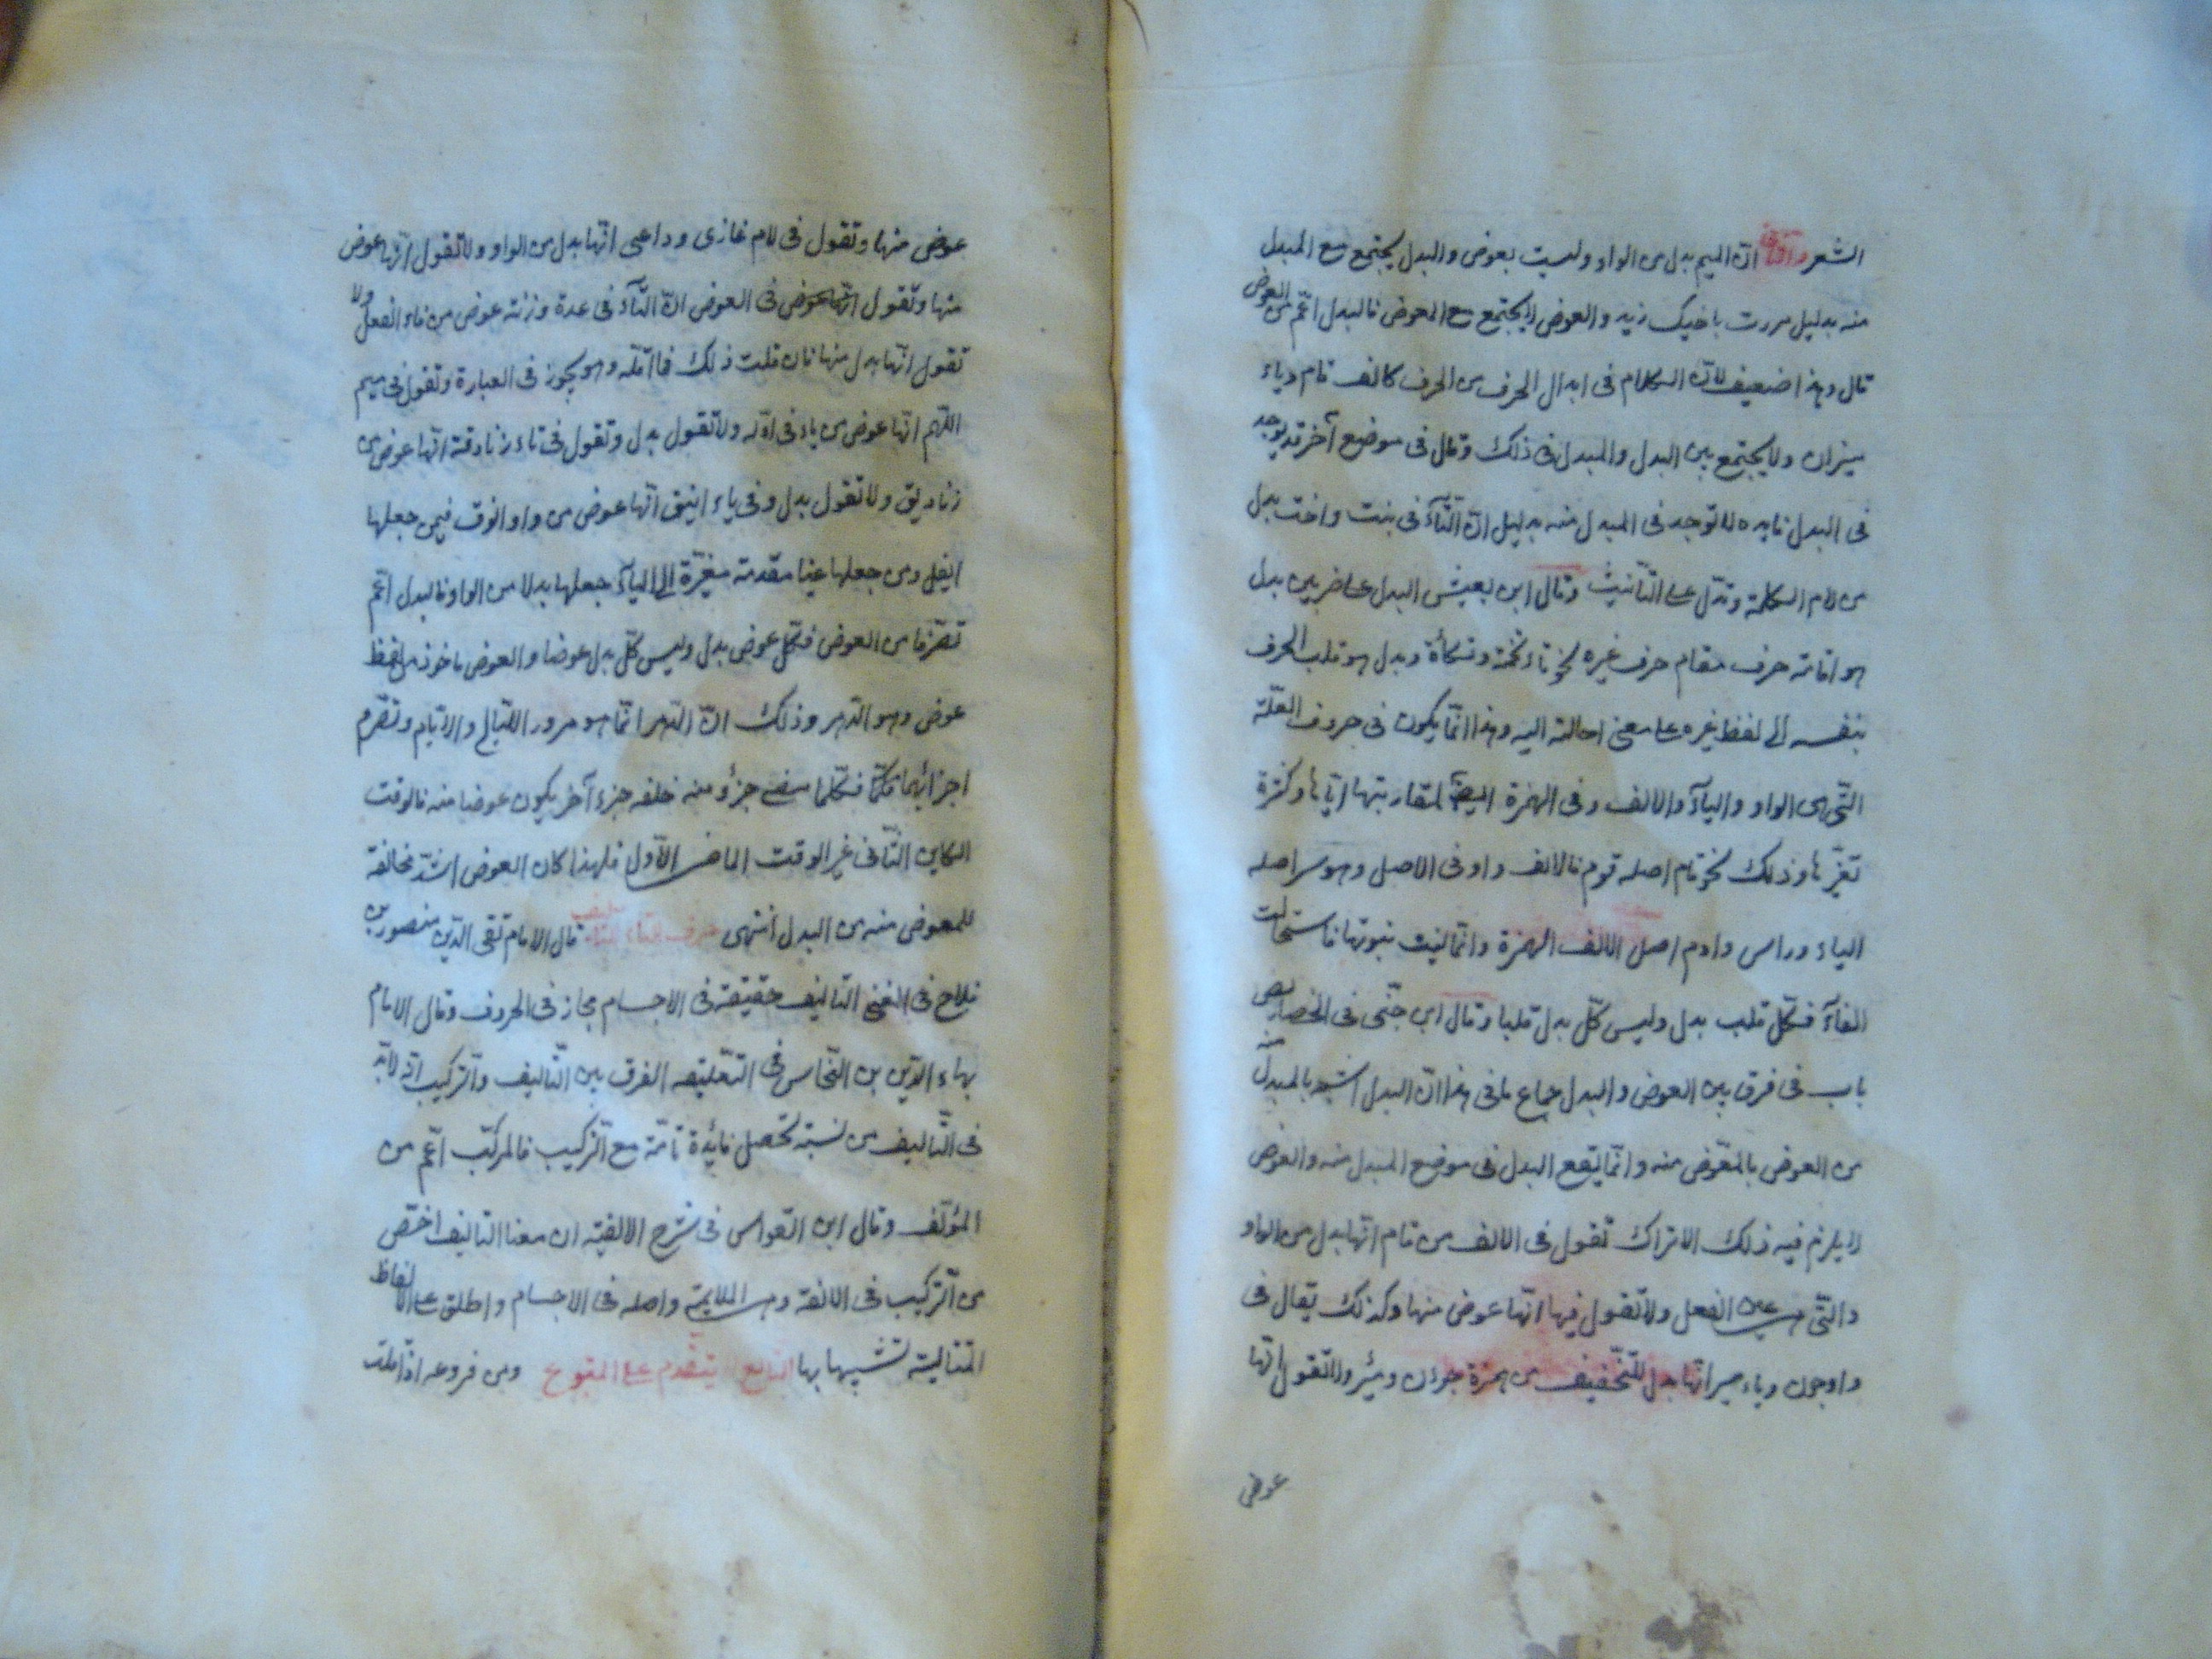 الشعر والثانى انّ الميم بدل من الواو وليست بعوض والبدل يجتمع مع المبدل
منه بدليل مررت باخيك زيد والعوض لا يجتمع مع المعوض فالبدل اعّم من العوض
قال وهذا ضعيف لانّ الكلام فى ابدال الحرف من الحرف كالف قام وياء
ميزان ولا يجتمع بين البدل والمبدل فى ذلك وقال فى موضع آخر قد يوجد
فى البدل فايده لا توجد فى المبدل منه بدليل انّ التّآء فى بنت واخت بدل
من لام الكلمة وتدّل على التّأنيث وقال ابن يعيش البدل على ضربين بدل
هو اقامة حرف مقام حرف غيره نحو تاء تخمة وتكأة وبدل هو قلب الحرف
بنفسه الى لفظ غيره على معنى احالته اليه وهذا انّما يكون فى حروف العلّة
التّى هى الواو والياّء والالف وفى الهمزة ايضا لمقاربتها ايّاها وكثرة
تغيّرها وذلك نحو قام اصله قوم فالالف واو فى الاصل وموسر اصله
الياء وراس وادم اصل الالف الهمزة وانّما لينت نبرتها فاستحالت
الفآء فكّل قلب بدل وليس كّل بدل قلبا وقال ابن جنّى فى الخصايص
باب فى فرق بين العوض والبدل جماع ما فى هذا انّ البدل اشبه بالمبدل منه
من العوض بالمعّوض منه وانّما يقع البدل فى موضع المبدل منه والعوض
لا يلزم فيه ذلك الا تراك تقول فى الالف من قام انّها بدل من الواو
والتّى هى عين الفعل ولا تقول فيها انّها عوض منها وكذلك يقال فى
واو جون وياء مير انّها بدل للتّخفيف من همزة جؤن ومئر ولا تقول انّها
عوض
عوض منها وتقول فى لام غازى وداعى انّها بدل من الواو ولا تقول انّها عوض
منها وتقول فى العوض انّ التّآء فى عدة وزنة عوض من فاء الفعل ولا
تقول انّها بدل منها فان قلت ذلك فما اقّله وهو يجوز فى العبارة وتقول فى ميم
اللّهم انّها عوض من ياء فى اوّله ولا تقول بدل وتقول فى تاء زنادقة انّها عوض من
زناديق ولا تقول بدل وفى ياء اينق انّها عوض من واو انوق فيمن جعلها
ايفل ومن جعلها عينا مقدمة مغيّرة الى اليآء جعلها بدلا من الواو فالبدل اعّم
تصّرفا من العوض فكّل عوض بدل وليس كّل بدل عوضا والعوض ماخوذ من لفظ
عوض وهو الدّهر وذلك انّ الدّهر انّما هو مرور اللّيالى والايّام وتصّرم
اجزائهما فكّلما مضى جزؤ منه خلفه جزء آخر يكون عوضا منه فالوقت
الكاين الثّانى غير الوقت الماضى الاّول فلهذا كان العوض اشّد مخالفة
للمعوض منه من البدل انتهى قال الامام تقى الدّين منصور بن
فلاح فى المغنى التاليف حقيقة فى الاجسام مجاز فى الحروف وقال الامام
بهاء الدّين بن النّحاس فى التعليقه الفرق بين التّاليف والتّركيب انّه لابّد
فى التّاليف من نسبة تحصل فائدة تامّة مع التّركيب فالمركّب اعّم من
المؤلّف وقال ابن القواس فى شرح الالفيّة ان معنا التاليف اخصّ
من التّركيب فى الالفة وهى الملايمة واصله فى الاجسام واطلق على الالفاظ
المتتالية تشبيها بها التابع لا يتقدم على المتبوع ومن فروعه اذا قلت